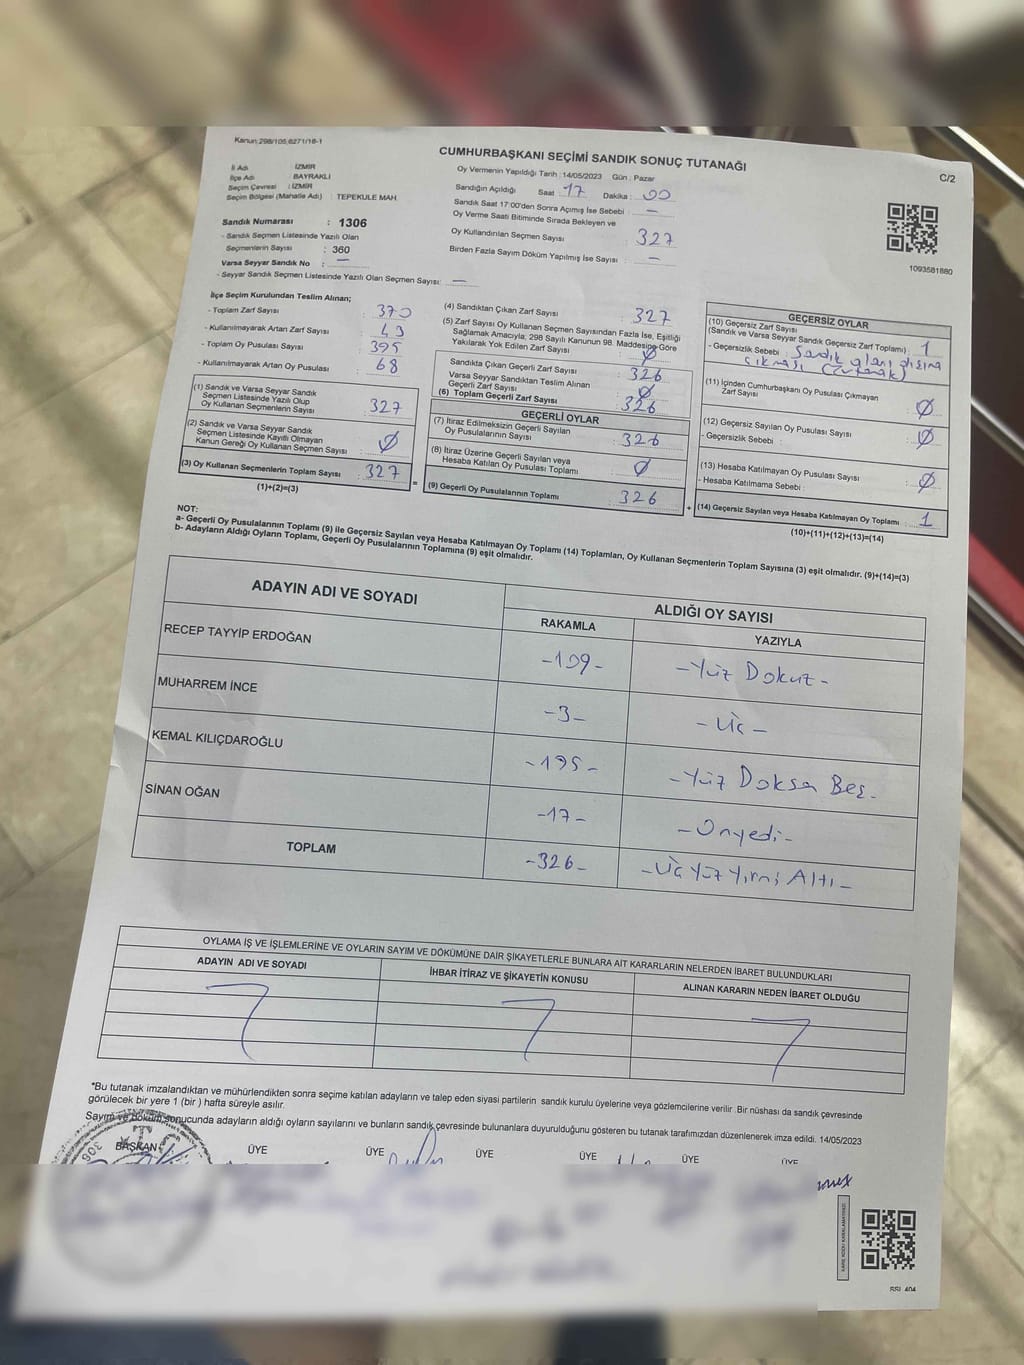 Kanun:298/105,6271/16-1
CUMHURBAŞKANI SEÇİMİ SANDIK SONUÇ TUTANAĞI
C/2
İl Adı : İZMİR
İlçe Adı : BAYRAKLI
Seçim Çevresi : İZMİR
Seçim Bölgesi (Mahalle Adı) : TEPEKULE MAH.
Sandık Numarası : 1306
- Sandık Seçmen Listesinde Yazılı Olan
Seçmenlerin Sayısı : 360
Varsa Seyyar Sandık No : —
- Seyyar Sandık Seçmen Listesinde Yazılı Olan Seçmen Sayısı: —
Oy Vermenin Yapıldığı Tarih :14/05/2023 Gün : Pazar
Sandığın Açıldığı Saat 17 Dakika : 00
Sandık Saat 17:00'den Sonra Açımış İse Sebebi : —
Oy Verme Saati Bitiminde Sırada Bekleyen ve
Oy Kullandırılan Seçmen Sayısı : 327
Birden Fazla Sayım Döküm Yapılmış İse Sayısı : —
1093581880
İlçe Seçim Kurulundan Teslim Alınan;
- Toplam Zarf Sayısı : 370
- Kullanılmayarak Artan Zarf Sayısı : 43
- Toplam Oy Pusulası Sayısı : 395
- Kullanılmayarak Artan Oy Pusulası : 68
(1) Sandık ve Varsa Seyyar Sandık
Seçmen Listesinde Yazılı Olup
Oy Kullanan Seçmenlerin Sayısı : 327
(2) Sandık ve Varsa Seyyar Sandık
Seçmen Listesinde Kayıtlı Olmayan
Kanun Gereği Oy Kullanan Seçmen Sayısı : Ø
(3) Oy Kullanan Seçmenlerin Toplam Sayısı : 327
(1)+(2)=(3)
=
(4) Sandıktan Çıkan Zarf Sayısı : 327
(5) Zarf Sayısı Oy Kullanan Seçmen Sayısından Fazla İse, Eşitliği
Sağlamak Amacıyla; 298 Sayılı Kanunun 98. Maddesine Göre
Yakılarak Yok Edilen Zarf Sayısı : Ø
Sandıkta Çıkan Geçerli Zarf Sayısı : 326
Varsa Seyyar Sandıktan Teslim Alınan
Geçerli Zarf Sayısı : Ø
(6) Toplam Geçerli Zarf Sayısı : 326
GEÇERLİ OYLAR
(7) İtiraz Edilmeksizin Geçerli Sayılan
Oy Pusulalarının Sayısı : 326
(8) İtiraz Üzerine Geçerli Sayılan veya
Hesaba Katılan Oy Pusulası Toplamı : Ø
(9) Geçerli Oy Pusulalarının Toplamı : 326
+
GEÇERSİZ OYLAR
(10) Geçersiz Zarf Sayısı
(Sandık ve Varsa Seyyar Sandık Geçersiz Zarf Toplamı) : 1
- Geçersizlik Sebebi : Sandık alanı dışına
çıkması (Tutanak)
(11) İçinden Cumhurbaşkanı Oy Pusulası Çıkmayan
Zarf Sayısı : Ø
(12) Geçersiz Sayılan Oy Pusulası Sayısı : Ø
- Geçersizlik Sebebi :
(13) Hesaba Katılmayan Oy Pusulası Sayısı : Ø
- Hesaba Katılmama Sebebi :
(14) Geçersiz Sayılan veya Hesaba Katılmayan Oy Toplamı : 1
(10)+(11)+(12)+(13)=(14)
NOT:
a- Geçerli Oy Pusulalarının Toplamı (9) ile Geçersiz Sayılan veya Hesaba Katılmayan Oy Toplamı (14) Toplamları, Oy Kullanan Seçmenlerin Toplam Sayısına (3) eşit olmalıdır. (9)+(14)=(3)
b- Adayların Aldığı Oyların Toplamı, Geçerli Oy Pusulalarının Toplamına (9) eşit olmalıdır.
ADAYIN ADI VE SOYADI
ALDIĞI OY SAYISI
RAKAMLA YAZIYLA
RECEP TAYYİP ERDOĞAN -109- -Yüz Dokuz-
MUHARREM İNCE -3- -Üç-
KEMAL KILIÇDAROĞLU -195- -Yüz Doksa Beş-
SİNAN OĞAN -17- -Onyedi-
TOPLAM -326- -Üç Yüz Yirmi Altı-
OYLAMA İŞ VE İŞLEMLERİNE VE OYLARIN SAYIM VE DÖKÜMÜNE DAİR ŞİKAYETLERLE BUNLARA AİT KARARLARIN NELERDEN İBARET BULUNDUKLARI
ADAYIN ADI VE SOYADI İHBAR İTİRAZ VE ŞİKAYETİN KONUSU ALINAN KARARIN NEDEN İBARET OLDUĞU
*Bu tutanak imzalandıktan ve mühürlendikten sonra seçime katılan adayların ve talep eden siyasi partilerin sandık kurulu üyelerine veya gözlemcilerine verilir. Bir nüshası da sandık çevresinde
görülecek bir yere 1 (bir ) hafta süreyle asılır.
Sayım ve döküm sonucunda adayların aldığı oyların sayılarını ve bunların sandık çevresinde bulunanlara duyurulduğunu gösteren bu tutanak tarafımızdan düzenlenerek imza edildi. 14/05/2023
BAŞKAN ÜYE ÜYE ÜYE ÜYE ÜYE ÜYE